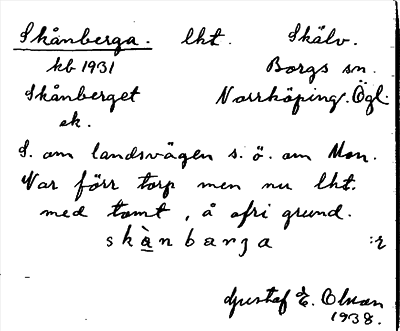 Skånberga. lht. Skälv.
kb 1931 Borgs sn.
Skånberget Norrköping. Ögl.
ek.
S. om landsvägen s. ö. om Mon.
Var förr torp men nu lht.
med tomt, å ofri grund.
skànbarga :r
Gustaf E. Olsson
1938.